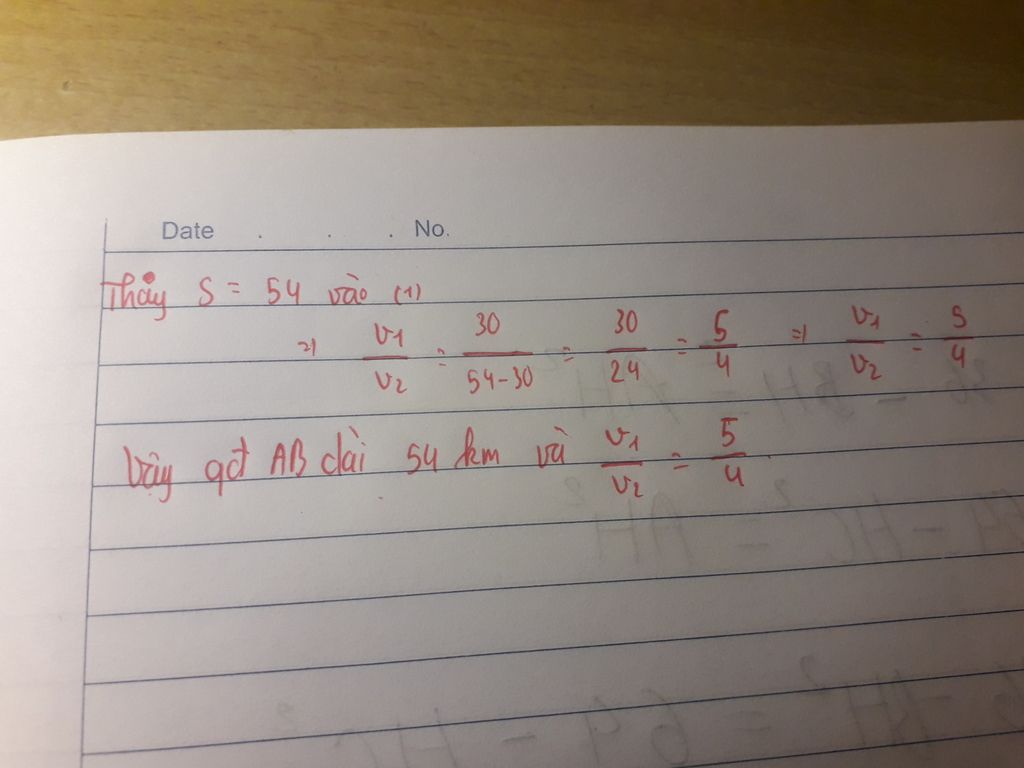 Date . . . No.
Thay S = 54 vào (1)
=> v1/v2 = 30/54-30 = 30/24 = 5/4 => v1/v2 = 5/4
Vậy qđ AB dài 54 km và v1/v2 = 5/4